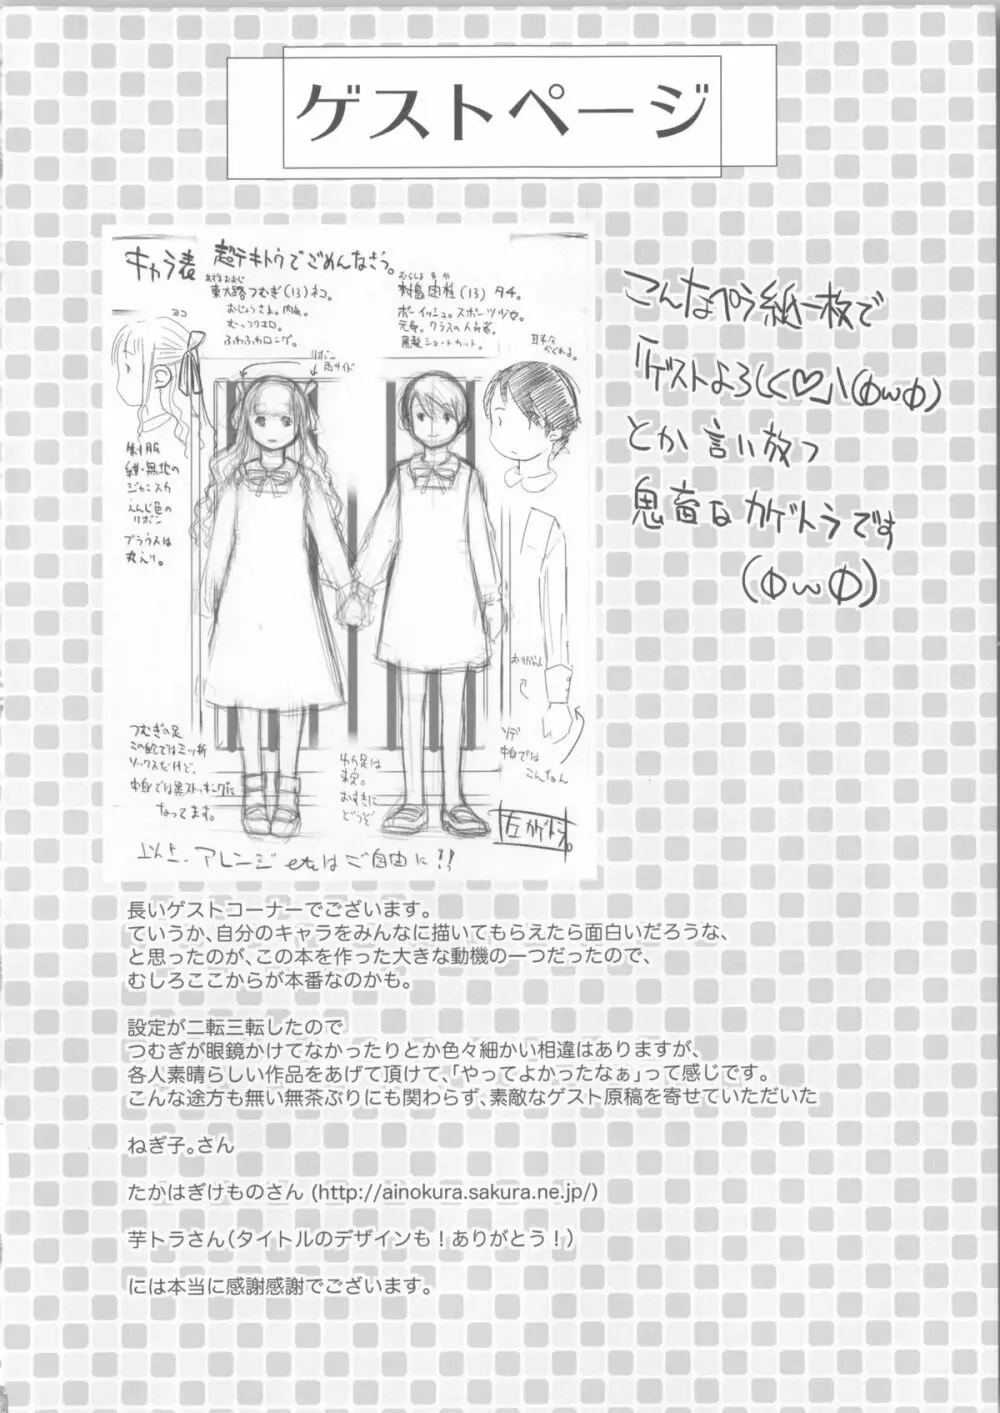 ゲストページ
キャラ表 超テキトウでごめんなさう。
あずまおおじ
東大路つむぎ(13)ネコ。
おじょうさま。内気。
むっつりエロ。
ふわふわロング。
むらしま
村島由枝(13)タチ。
ボーイッシュ。スポーツ少女。
元気。クラスの人気者。
黒髪ショートカット。
ヨコ
リボン
両サイド
制服
紺・無地の
ジャンスカ
えんじ色の
リボン
ブラウスは
丸えり。
つむぎの足
この絵では三ッ折
ソックスだけど、
中身では黒ストッキングに
なってます。
ゆか足は
未定。
おすきに
どうぞ
ソデ
中身では
こんなん
以上、アレンジetcはご自由に!!
こんなペラ紙一枚で
「ゲストよろしく♡」(ΦωΦ)
とか言い放つ
鬼畜なカゲトラです
(ΦωΦ)
長いゲストコーナーでございます。
ていうか、自分のキャラをみんなに描いてもらえたら面白いだろうな、
と思ったのが、この本を作った大きな動機の一つだったので、
むしろここからが本番なのかも。
設定が二転三転したので
つむぎが眼鏡かけてなかったりとか色々細かい相違はありますが、
各人素晴らしい作品をあげて頂けて、「やってよかったなぁ」って感じです。
こんな途方も無い無茶ぶりにも関わらず、素敵なゲスト原稿を寄せていただいた
ねぎ子。さん
たかはぎけものさん (http://ainokura.sakura.ne.jp/)
芋トラさん(タイトルのデザインも!ありがとう!)
には本当に感謝感謝でございます。